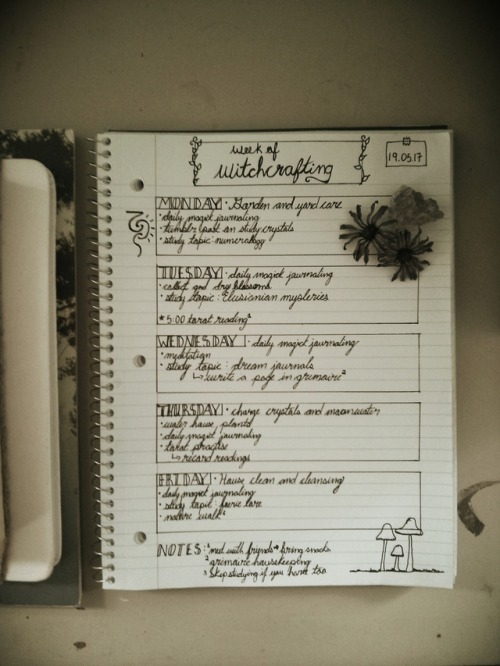 Week of
Witchcrafting
19.05.17
MONDAY • Garden and yard care
• daily magick journaling
• tumblr post on study crystals
• study topic: numerology
TUESDAY • daily magick journaling
• collect and dry blossoms
• study topic: Elusianian mysteries
* 5:00 tarot reading¹
WEDNESDAY • daily magick journaling
• meditation
• study topic: dream journals
↳ write a page in grimoire²
THURSDAY • charge crystals and moonwater
• water house plants
• daily magick journaling
• tarot practise
↳ record readings
FRIDAY • House clean and cleansing
• daily magick journaling
• study topic faerie lore
• nature walk³
NOTES: ¹ with friends bring snacks
² grimoire housekeeping
³ Skip studying if you have too